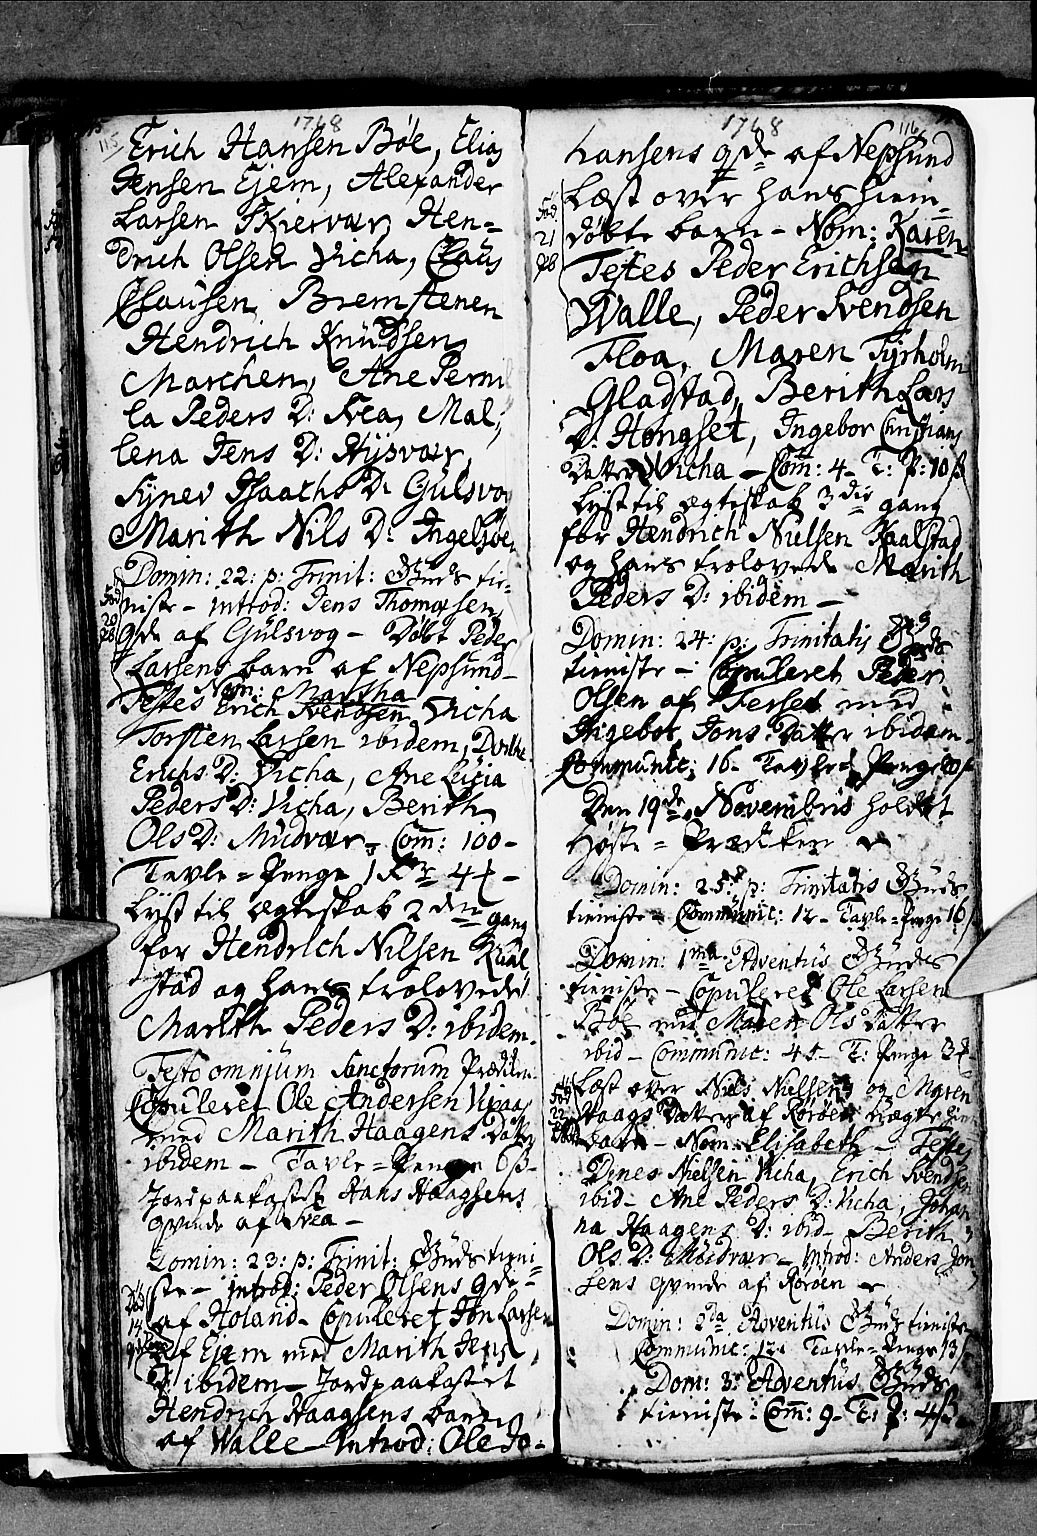 1768
115
Erich Hansen Bøe, Elias
Jensen Ejem, Alexander
Larsen Skiervær, Hen-
drich Olsen Vicha, Claus
Clausen Bremstenen
Hendrich Knudssen
Marchen, Ane Pernil
la Peders D: Svea, Mal-
lena Jens D: Hysvær,
Synev Isaachs D: Gulsvog
Marith Nils D: Ingelsøen
Domin: 22: p: Trinit: Guds tie-
niste - introd: Jens Thomæsens
qde af Gulsvog - Døbt Peder
Larsens barn af Nepsund -
Nom: Martha
Testes Erich Svendsen Vicha
Torsten Larsen ibidem,
Erichs D: Vicha, Ane Lucia
Peders D: Vicha, Berith
Ols D: Mudvær - Com: 100 -
Tavle-Penge 1 4
Lyst til ægteskab 2den gang
for Hendrich Nilsen Kaal
stad og hans trolovede
Marith Peders D: ibidem -
Festo omnium Sanctorum Prædiken
Copuleret Ole Andersen Visaas
med Marith Haagens Datter
ibidem - Tavle-Penge 6 ß -
Jordpaakastet Hans Haagsens
qvinde af Svea -
Domin: 23: p: Trinit: Guds tieni-
ste - introd: Peder Olsens qde -
af Holand - Copuleret Jon Larsen
af Ejem med Marith Jens
D: ibidem - Jordpaakastet
Hendrich Haagsens barn
af Walle - Introd: Ole Jo-
1768
116
hansens qde af Nepsund
Læst over hans hiem-
døbte barn - Nom: Karen
Fød
21
Testes Peder Erichsen
Walle, Peder Svendsen
Floa, Maren Tyrholm
Gladstad, Berith Lars
D: Hongset, Ingebor Christians
Datter Vicha - Com: 4 - T: P: 10 ß
Lyst til ægteskab 3die gang
for Hendrich Nielsen Kaalstad
og hans trolovede Marith
Peders D: ibidem -
Domin: 24: p: Trinitatis Guds
tieniste - Copuleret Peder
Olsen af Ferset med
Ingebor Jons Datter ibidem -
Communic: 16 - Tavle-Penge
Den 19de Novembris holdet
Høste-Prædiken
Domin: 25: p: Trinitatis Guds
tieniste - Communic: 12 - Tavle-Penge 16
Domin: 1ma Adventus Guds
tieniste - Copuleret Ole Larsen
Bøe med Maren Ols Datter
ibid - Communic: 45 - T: Penge 3
Læst over Niels Nielsens og Maren
Haags Datter af Rørøen
barn - Nom: Elisabeth - Testes
Fød
22
Denes Nielsen Vicha, Erich Svendsen
ibid - Ane Peders D: Vicha, Johan
na Haagens D: ibid - Berith
Ols D: Mudvær - Introd: Anders Jon
sens qvinde af Rørøen -
Domin: 2da Adventus Guds tieniste
Communic: 12 - Tavle-Penge 13 ß
Dom: 3: Adventus Guds
tieniste: Com: 9 - T: P: 4 ß